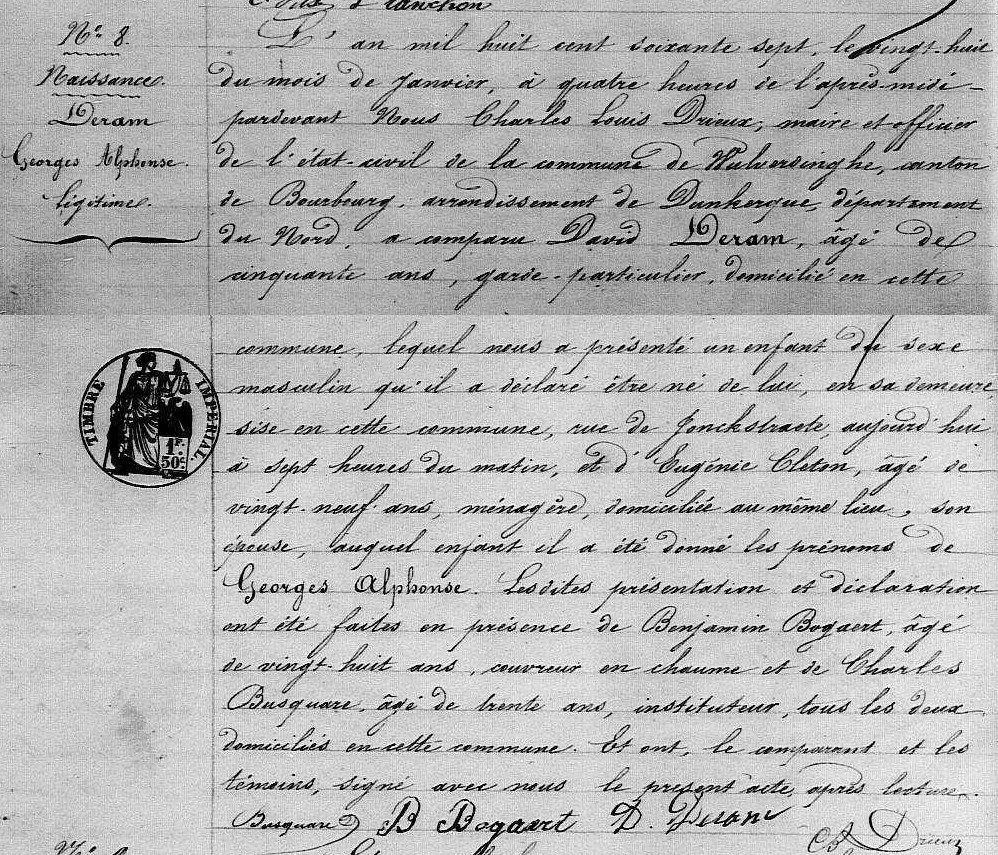 Nº 8.
Naissance.
Deram
Georges Alphonse.
légitime.
L'an mil huit cent soixante sept, le vingt-huit
du mois de Janvier, à quatre heures de l'après-midi
pardevant Nous Charles Louis Drieux, maire et officier
de l'état-civil de la commune de Wulverdinghe, canton
de Bourbourg, arrondissement de Dunkerque, département
du Nord, a comparu David Deram, âgé de
cinquante ans, garde-particulier, domicilié en cette
commune, lequel nous a présenté un enfant du sexe
masculin qu'il a déclaré être né de lui, en sa demeure,
sise en cette commune, rue de Jonckstraete, aujourd'hui
à sept heures du matin, et d'Eugénie Cleton, âgé de
vingt-neuf ans, ménagère, domiciliée au même lieu, son
épouse, auquel enfant il a été donné les prénoms de
Georges Alphonse. Lesdites présentation et déclaration
ont été faites en présence de Benjamin Bogaert, âgé
de vingt-huit ans, couvreur en chaume et de Charles
Busquare, âgé de trente ans, instituteur, tous les deux
domiciliés en cette commune. Et ont, le comparant et les
témoins, signé avec nous le présent acte, après lecture.
Busquare B Bogaert D. Deram Ch Drieux
TIMBRE IMPERIAL.
1F.
50c.